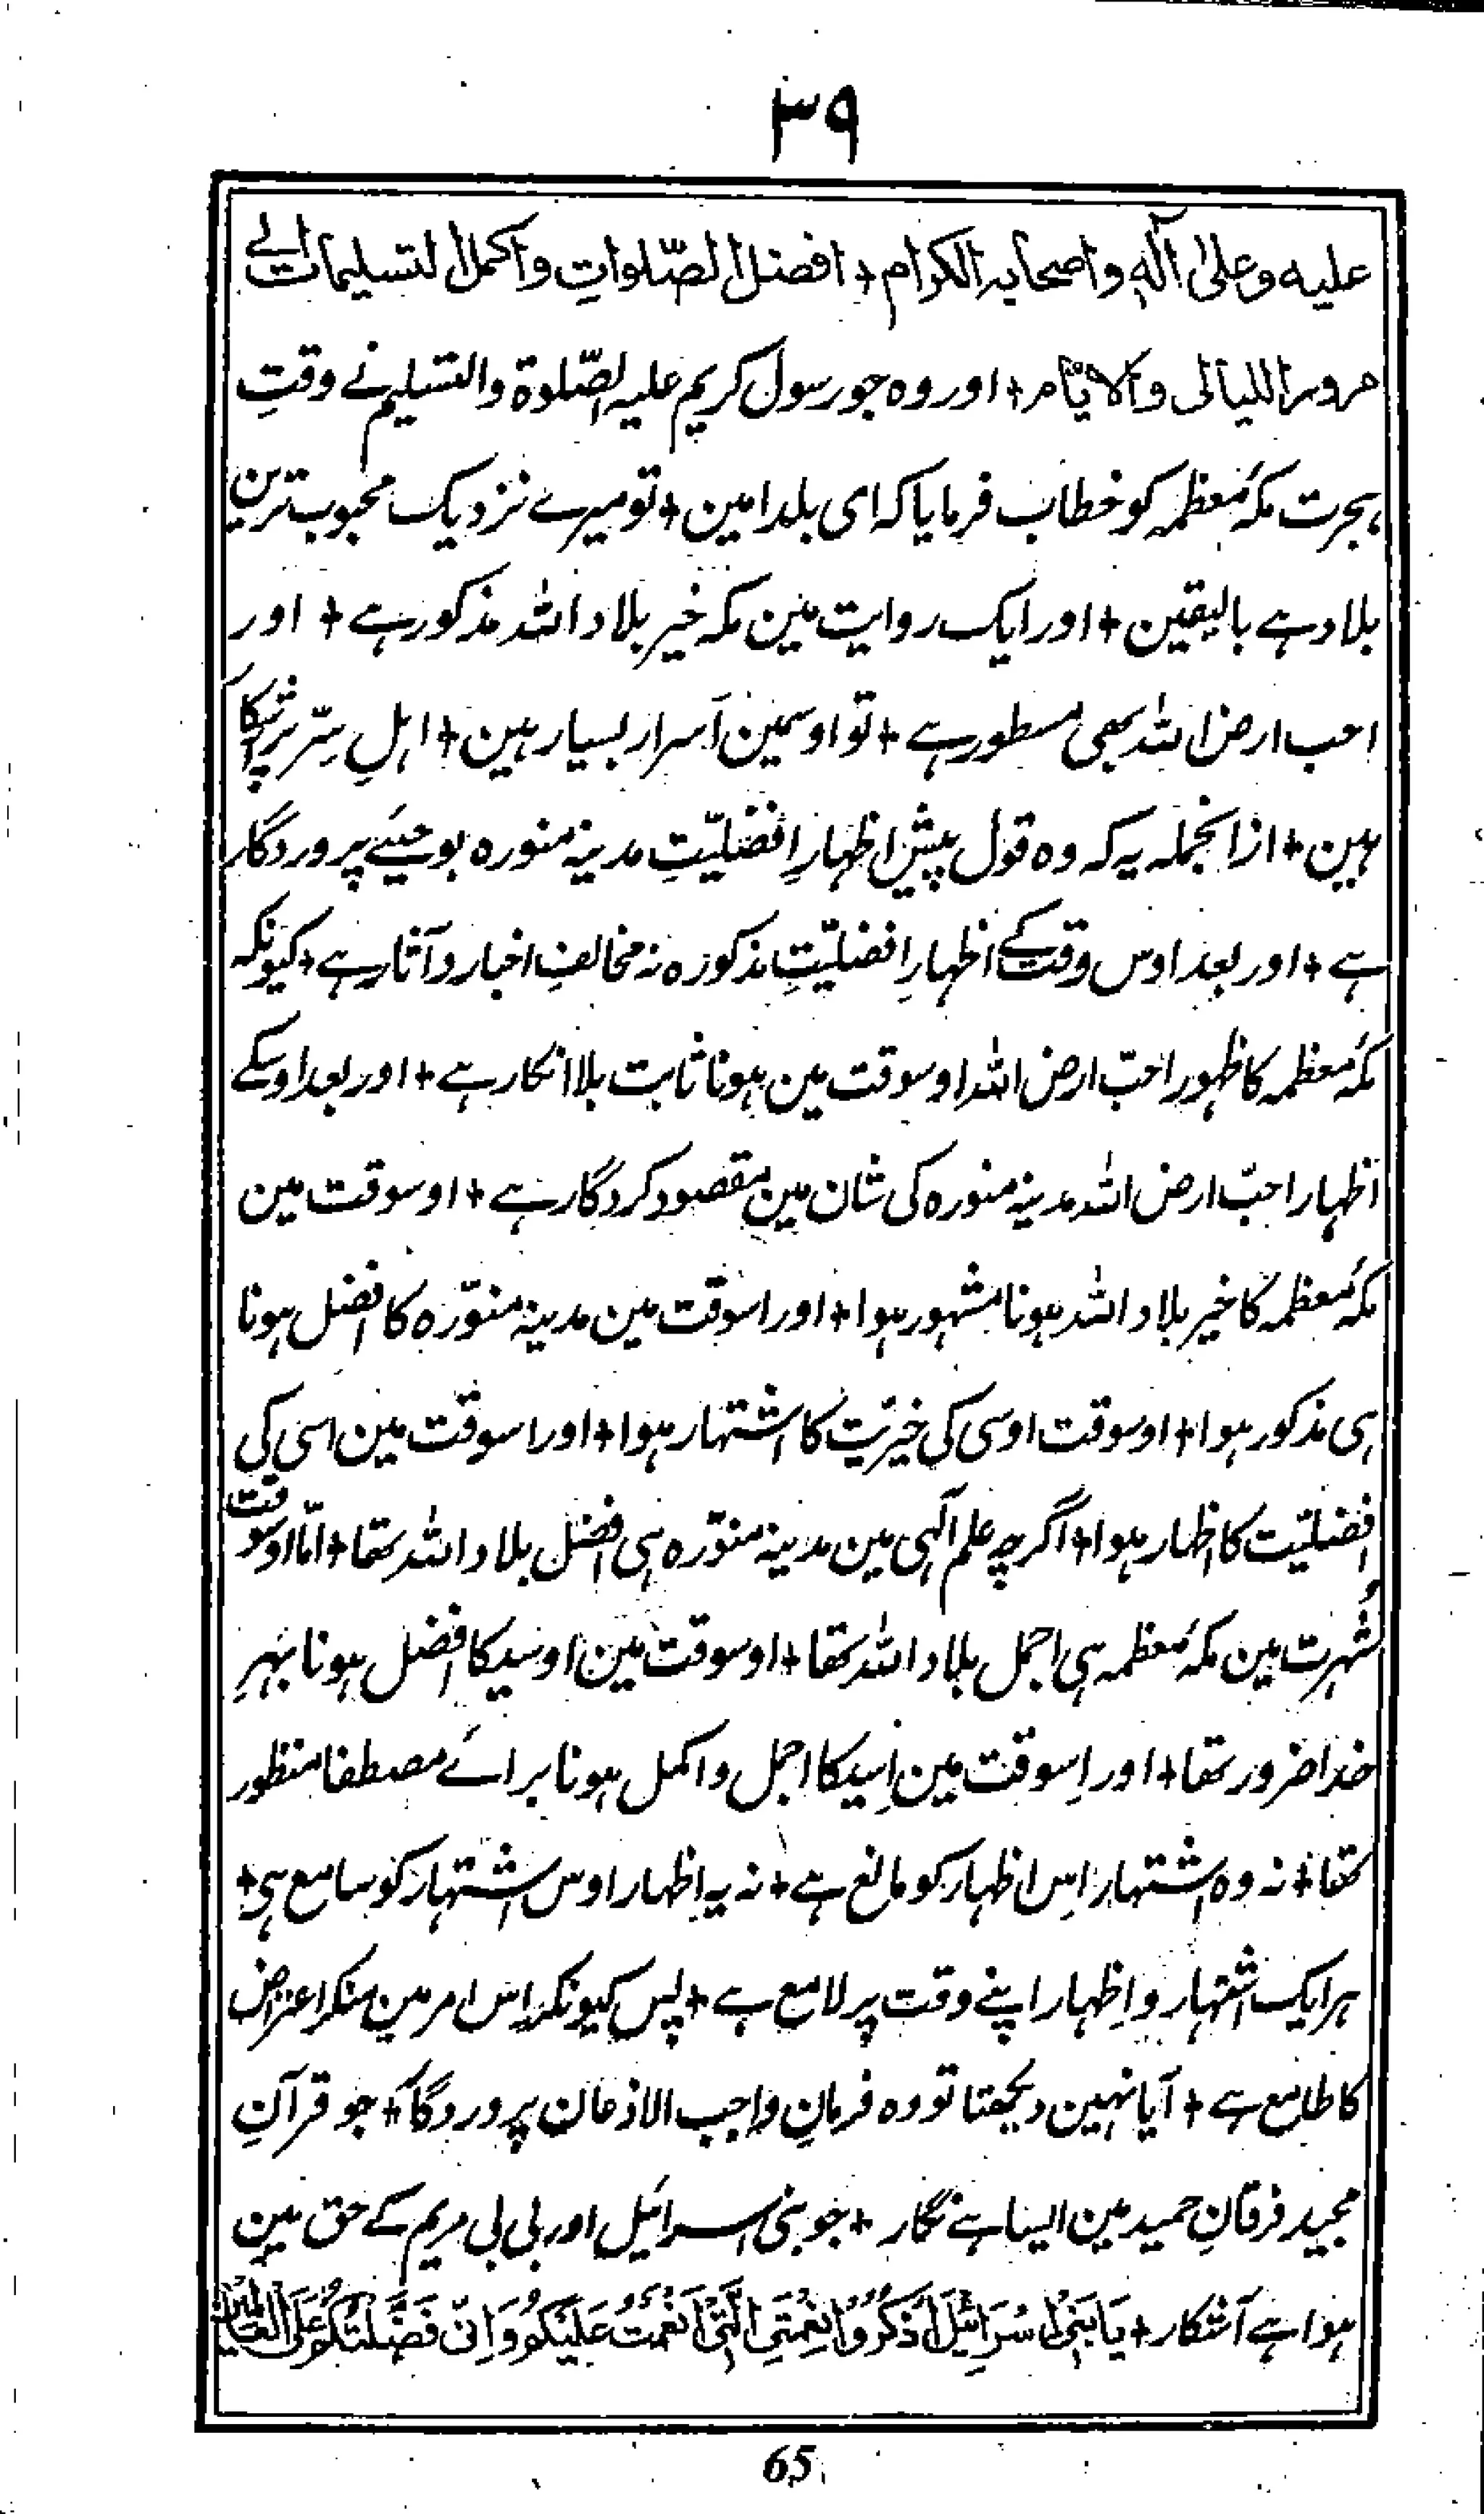 ۳۹
علیه وعلیٰ آلهٖ واصحابه الکرام + افضل الصّلواتِ واکمل التسلیمات الے
مرور اللیالی والایّام + اور وہ جو رسول کریم علیہ الصّلوۃ والتسلیم نے وقتِ
ہجرت مکۂ معظمہ کو خطاب فرمایا کہ ای بلد امین + تو میرے نزدیک محبوب ترین
بلاد ہے بالیقین + اور ایک روایت مین مکہ خیر بلاد اللہ مذکور ہے + اور
احب ارض اللہ بھی مسطور ہے + تو اوسمین اسرار بسیار ہین + اہلِ سِرّ پر آشکا
ہین + ازانجملہ یہ کہ وہ قول پیش اظہارِ افضلیّتِ مدینہ منورہ بوحیئے پروردگار
ہے + اور بعد اوس وقت کے اظہارِ افضلیّتِ مذکورہ نہ مخالفِ اخبار و آثار ہے + کیونکہ
مکۂ معظمہ کا ظہور احبّ ارض اللہ اوسوقت مین ہونا ثابت بلا انکار ہے + اور بعد اوسکے
اظہار احبّ ارض اللہ مدینہ منورہ کی شان مین مقصود کردگار ہے + اوسوقت مین
مکۂ معظمہ کا خیر بلاد اللہ ہونا مشہور ہوا + اور اسوقت مین مدینہ منوّرہ کا افضل ہونا
ہی مذکور ہوا + اوسوقت اوسی کی خیریّت کا اشتہار ہوا + اور اسوقت مین اسی کی
افضلیّت کا اظہار ہوا + اگرچہ علم آلہی مین مدینہ منوّرہ ہی افضل بلاد اللہ تھا + امّا اوسوقت
شہرت مین مکۂ معظمہ ہی اجمل بلاد اللہ تھا + اوسوقت مین اوسیکا افضل ہونا بہرِ
خدا ضرور تھا + اور اِسوقت مین اِسیکا اجمل و اکمل ہونا برائے مصطفا منظور
تھا + نہ وہ اشتہار اِس اظہار کو مانع ہے + نہ یہ اِظہار اوس اشتہار کو سامع ہی +
ہر ایک اشتہار و اِظہار اپنے وقت پر لامع ہے + پس کیونکر اس امر مین منکر اعتراض
کا طامع ہے + آیا نہین دیکھتا تو وہ فرمانِ واجب الاذعان پروردگا + جو قرآنِ
مجید فرقانِ حمید مین ایسا ہے نگار + جو بنی اسرائیل اور بی بی مریم کے حق مین
ہوا ہے آشکار + یَا بَنِیْ اِسْرَائِیْلَ اذْکُرُوْا نِعْمَتِیَ الَّتِیْ اَنْعَمْتُ عَلَیْکُمْ وَاَنِّیْ فَضَّلْتُکُمْ عَلَی الْعَالَمِیْنَ
65